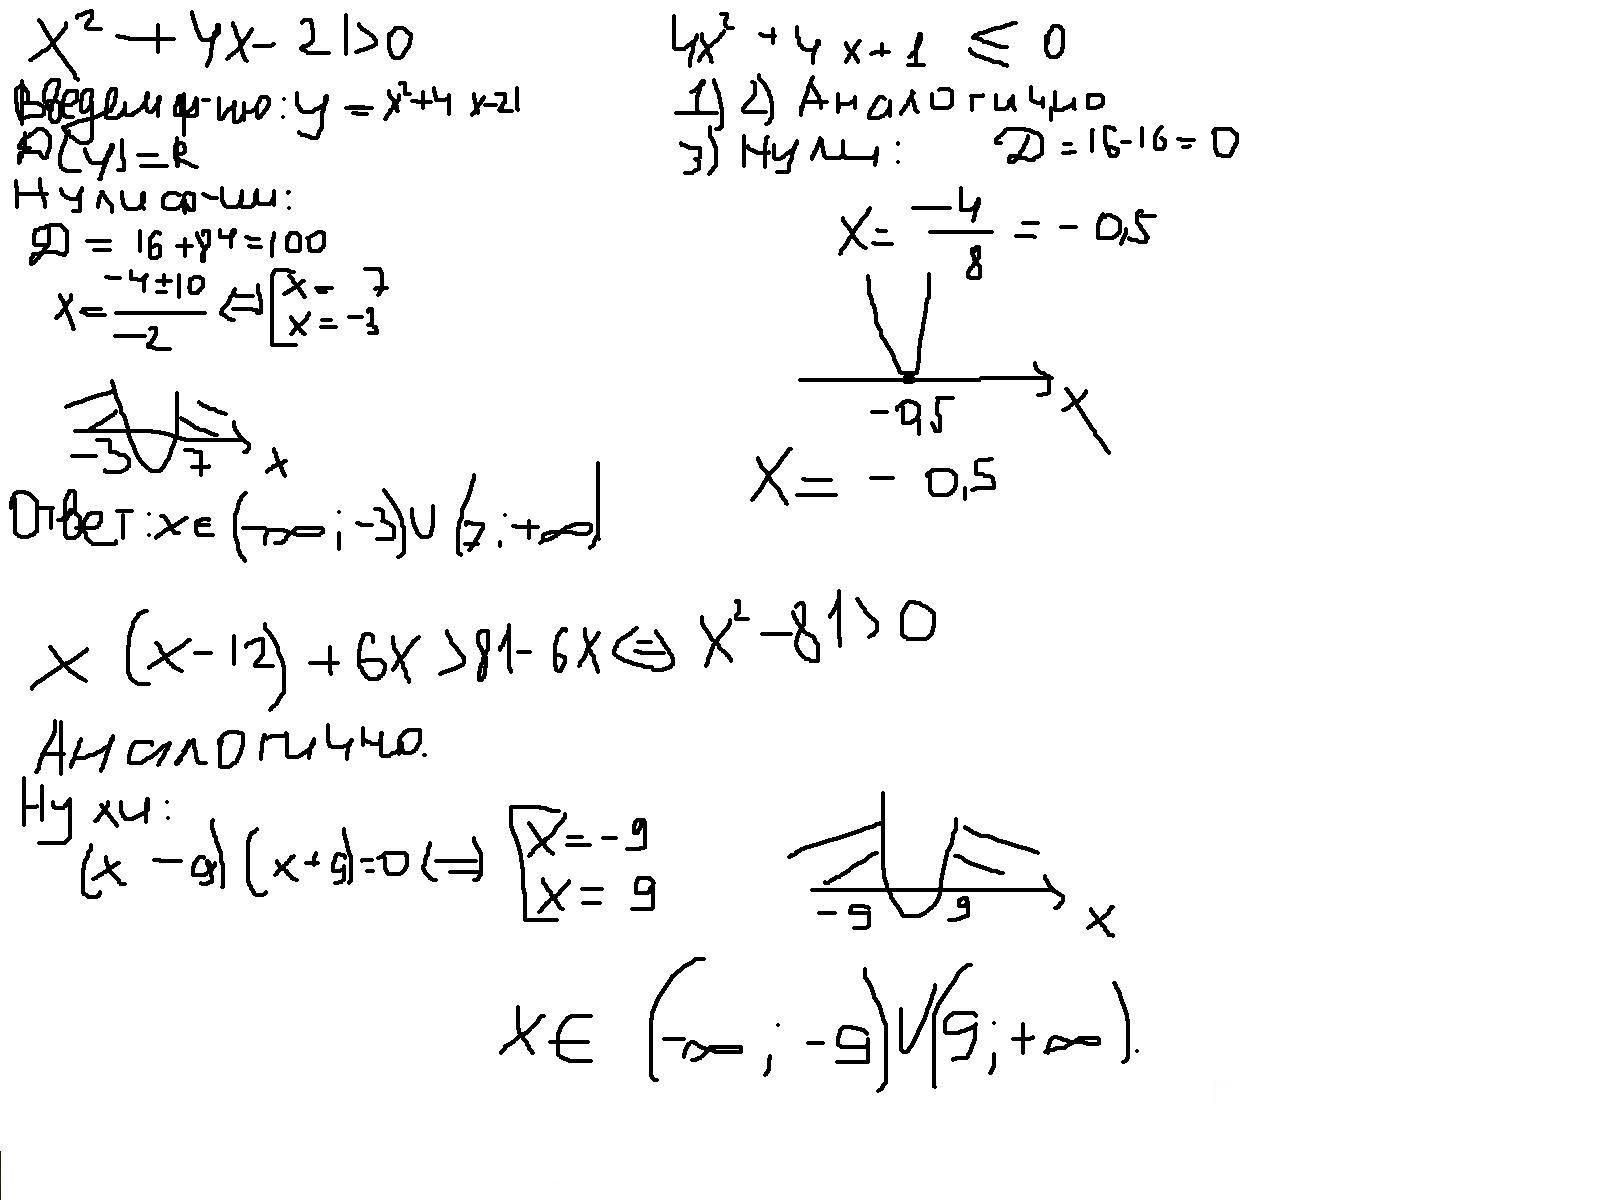 x² + 4x - 21 > 0
Введем ф-цию: y = x² + 4x - 21
D(y) = R
Нули ф-ции:
D = 16 + 84 = 100
x = (-4 ± 10) / -2 ⇔ [x = 7
x = -3
-3 7 x
Ответ: x ∈ (-∞; -3) ∪ (7; +∞)
4x² + 4x + 1 ≤ 0
1) 2) Аналогично
3) Нули: D = 16 - 16 = 0
x = -4 / 8 = -0,5
-0,5 x
x = -0,5
x (x - 12) + 6x > 81 - 6x ⇔ x² - 81 > 0
Аналогично.
Нули:
(x - 9) (x + 9) = 0 ⇔ [x = -9
x = 9
-9 9 x
x ∈ (-∞; -9) ∪ (9; +∞).